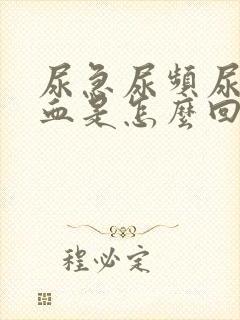 尿急尿頻尿
血是怎麼回
程必定